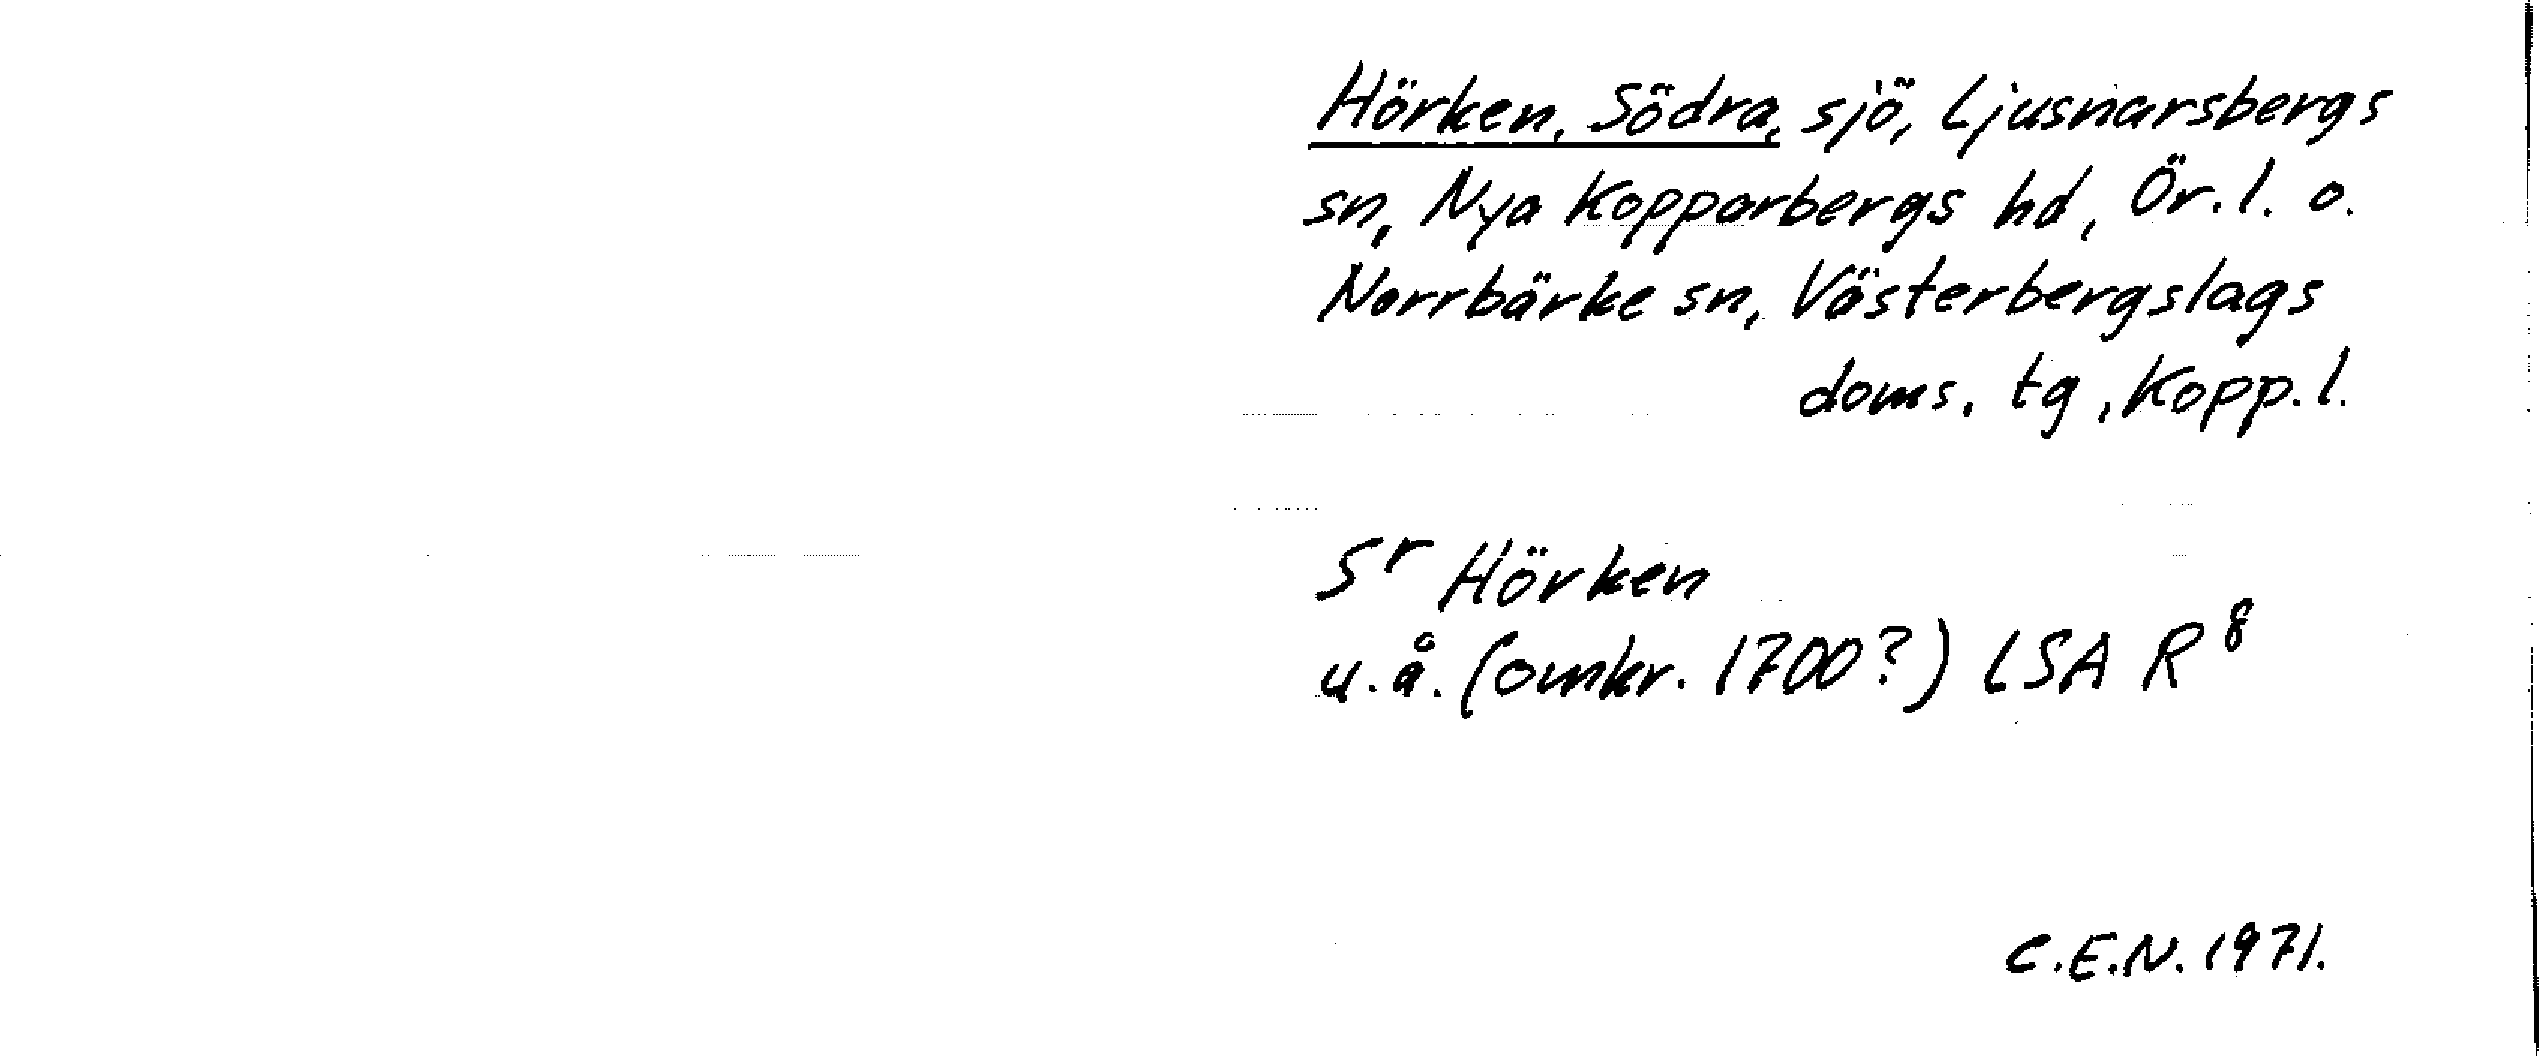 Hörken, Södra, sjö, Ljusnarsbergs
sn, Nya Kopparbergs hd, Ör. l. o.
Norrbärke sn, Västerbergslags
doms. tg, Kopp. l.
Sr Hörken
u. å. (omkr. 1700?) LSA R8
C.E.N. 1971.